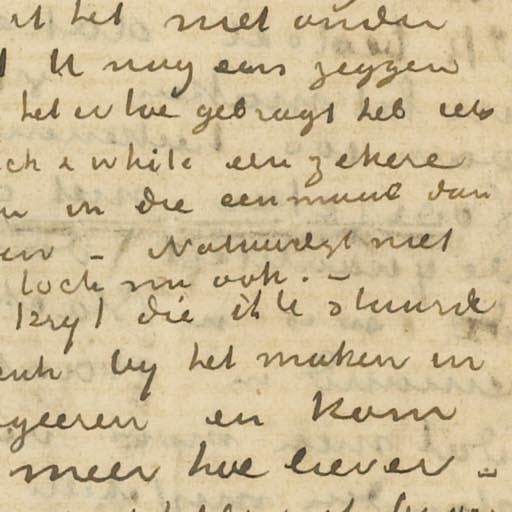 it het niet onder
U nog eens zeggen
het er toe gebragt heb iets
ck & white een zekere
in die eenmaal dan
en – Natuurlyk niet
toch nu ook. –
kryt die ik U stuurde
enk by het maken en
geeren en kom
meer hoe liever –